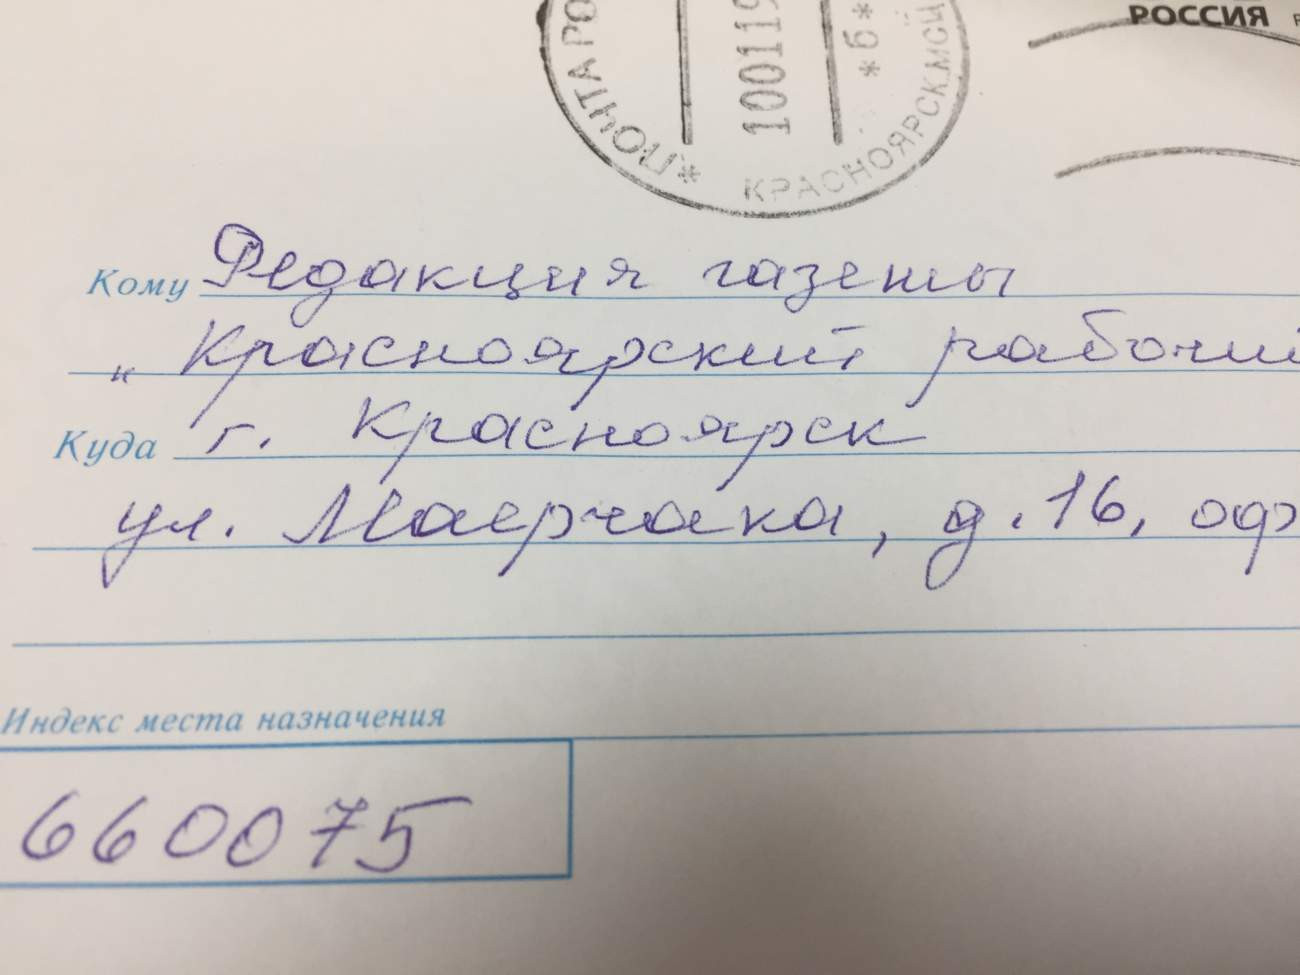 РОССИЯ
ПОЧТА РО
100119
*б*
КРАСНОЯРСК МСЦ
Кому Редакция газеты
„Красноярский рабочий
Куда г. Красноярск
ул. Маерчака, д. 16, оф
Индекс места назначения
660075